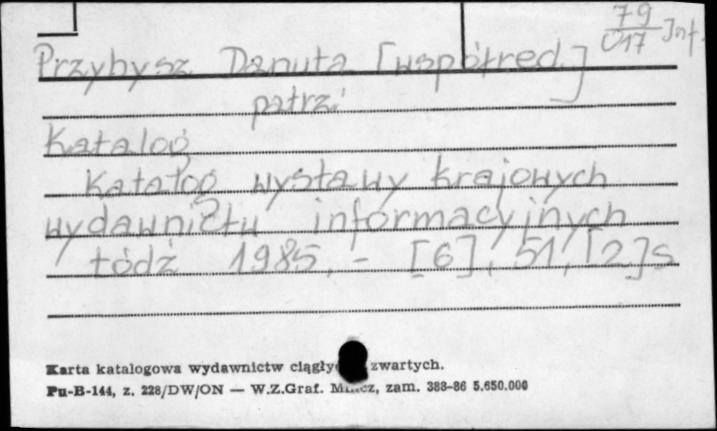 79
C17 Inf.
Przybysz Danuta [współred.]
patrz:
Katalog
Katalog wystawy krajowych
wydawnictw informacyjnych
Łódź 1985, - [6], 51, [2] s
Karta katalogowa wydawnictw zwartych.
Pu-B-144, z. 228/DW/ON — W.Z.Graf. zam. 388-86 5.650.000